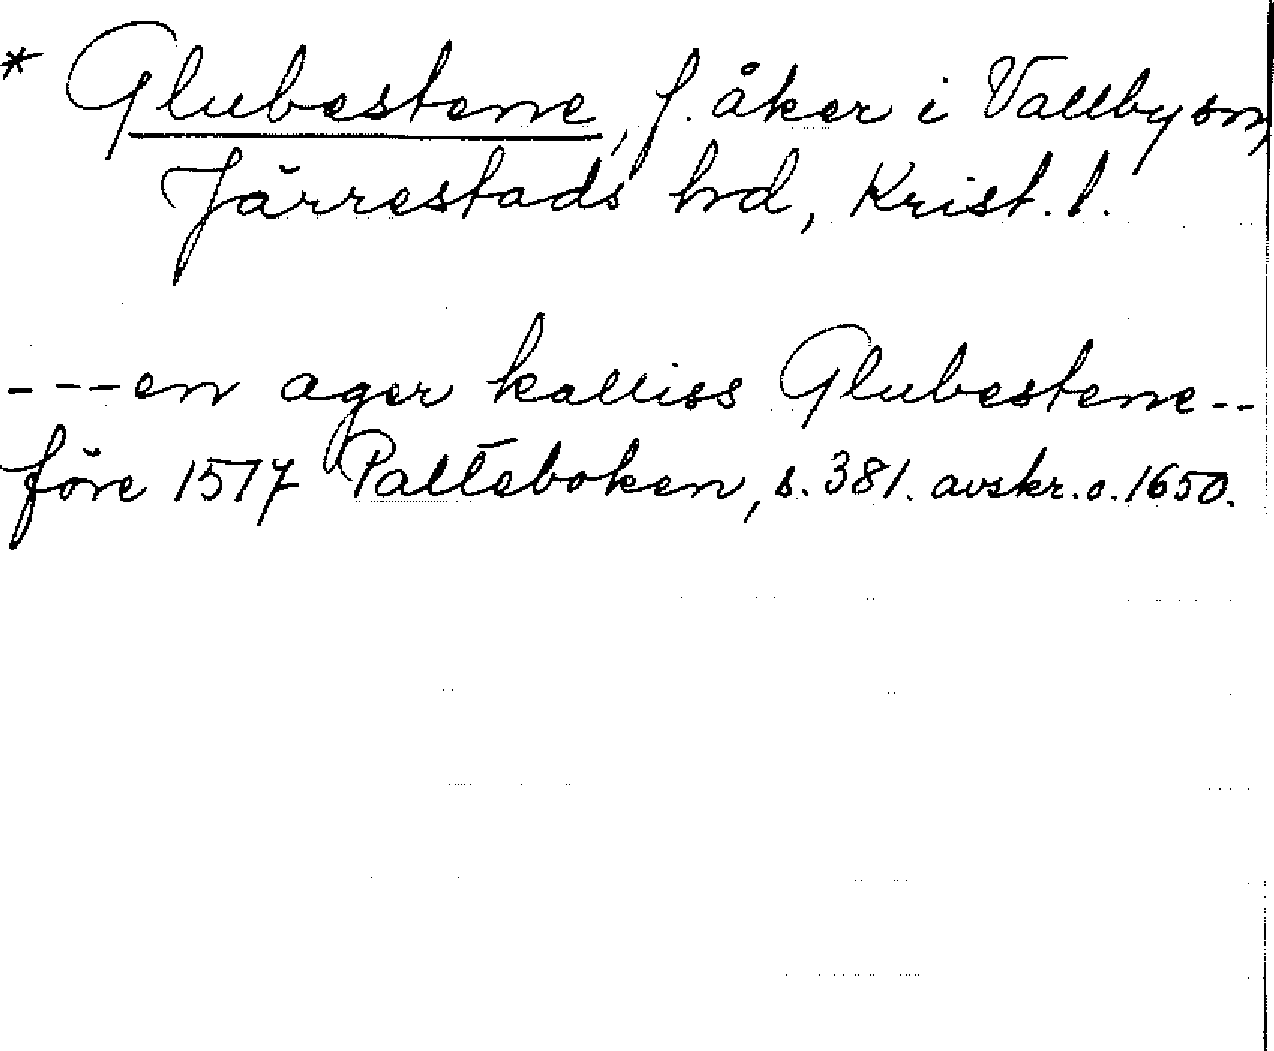 * Glubestene, f. åker i Vallby sn,
Järrestads hd, Krist. l.
---en ager kalliss Glubestene--
före 1517 Palteboken, s. 381. avskr. o. 1650.